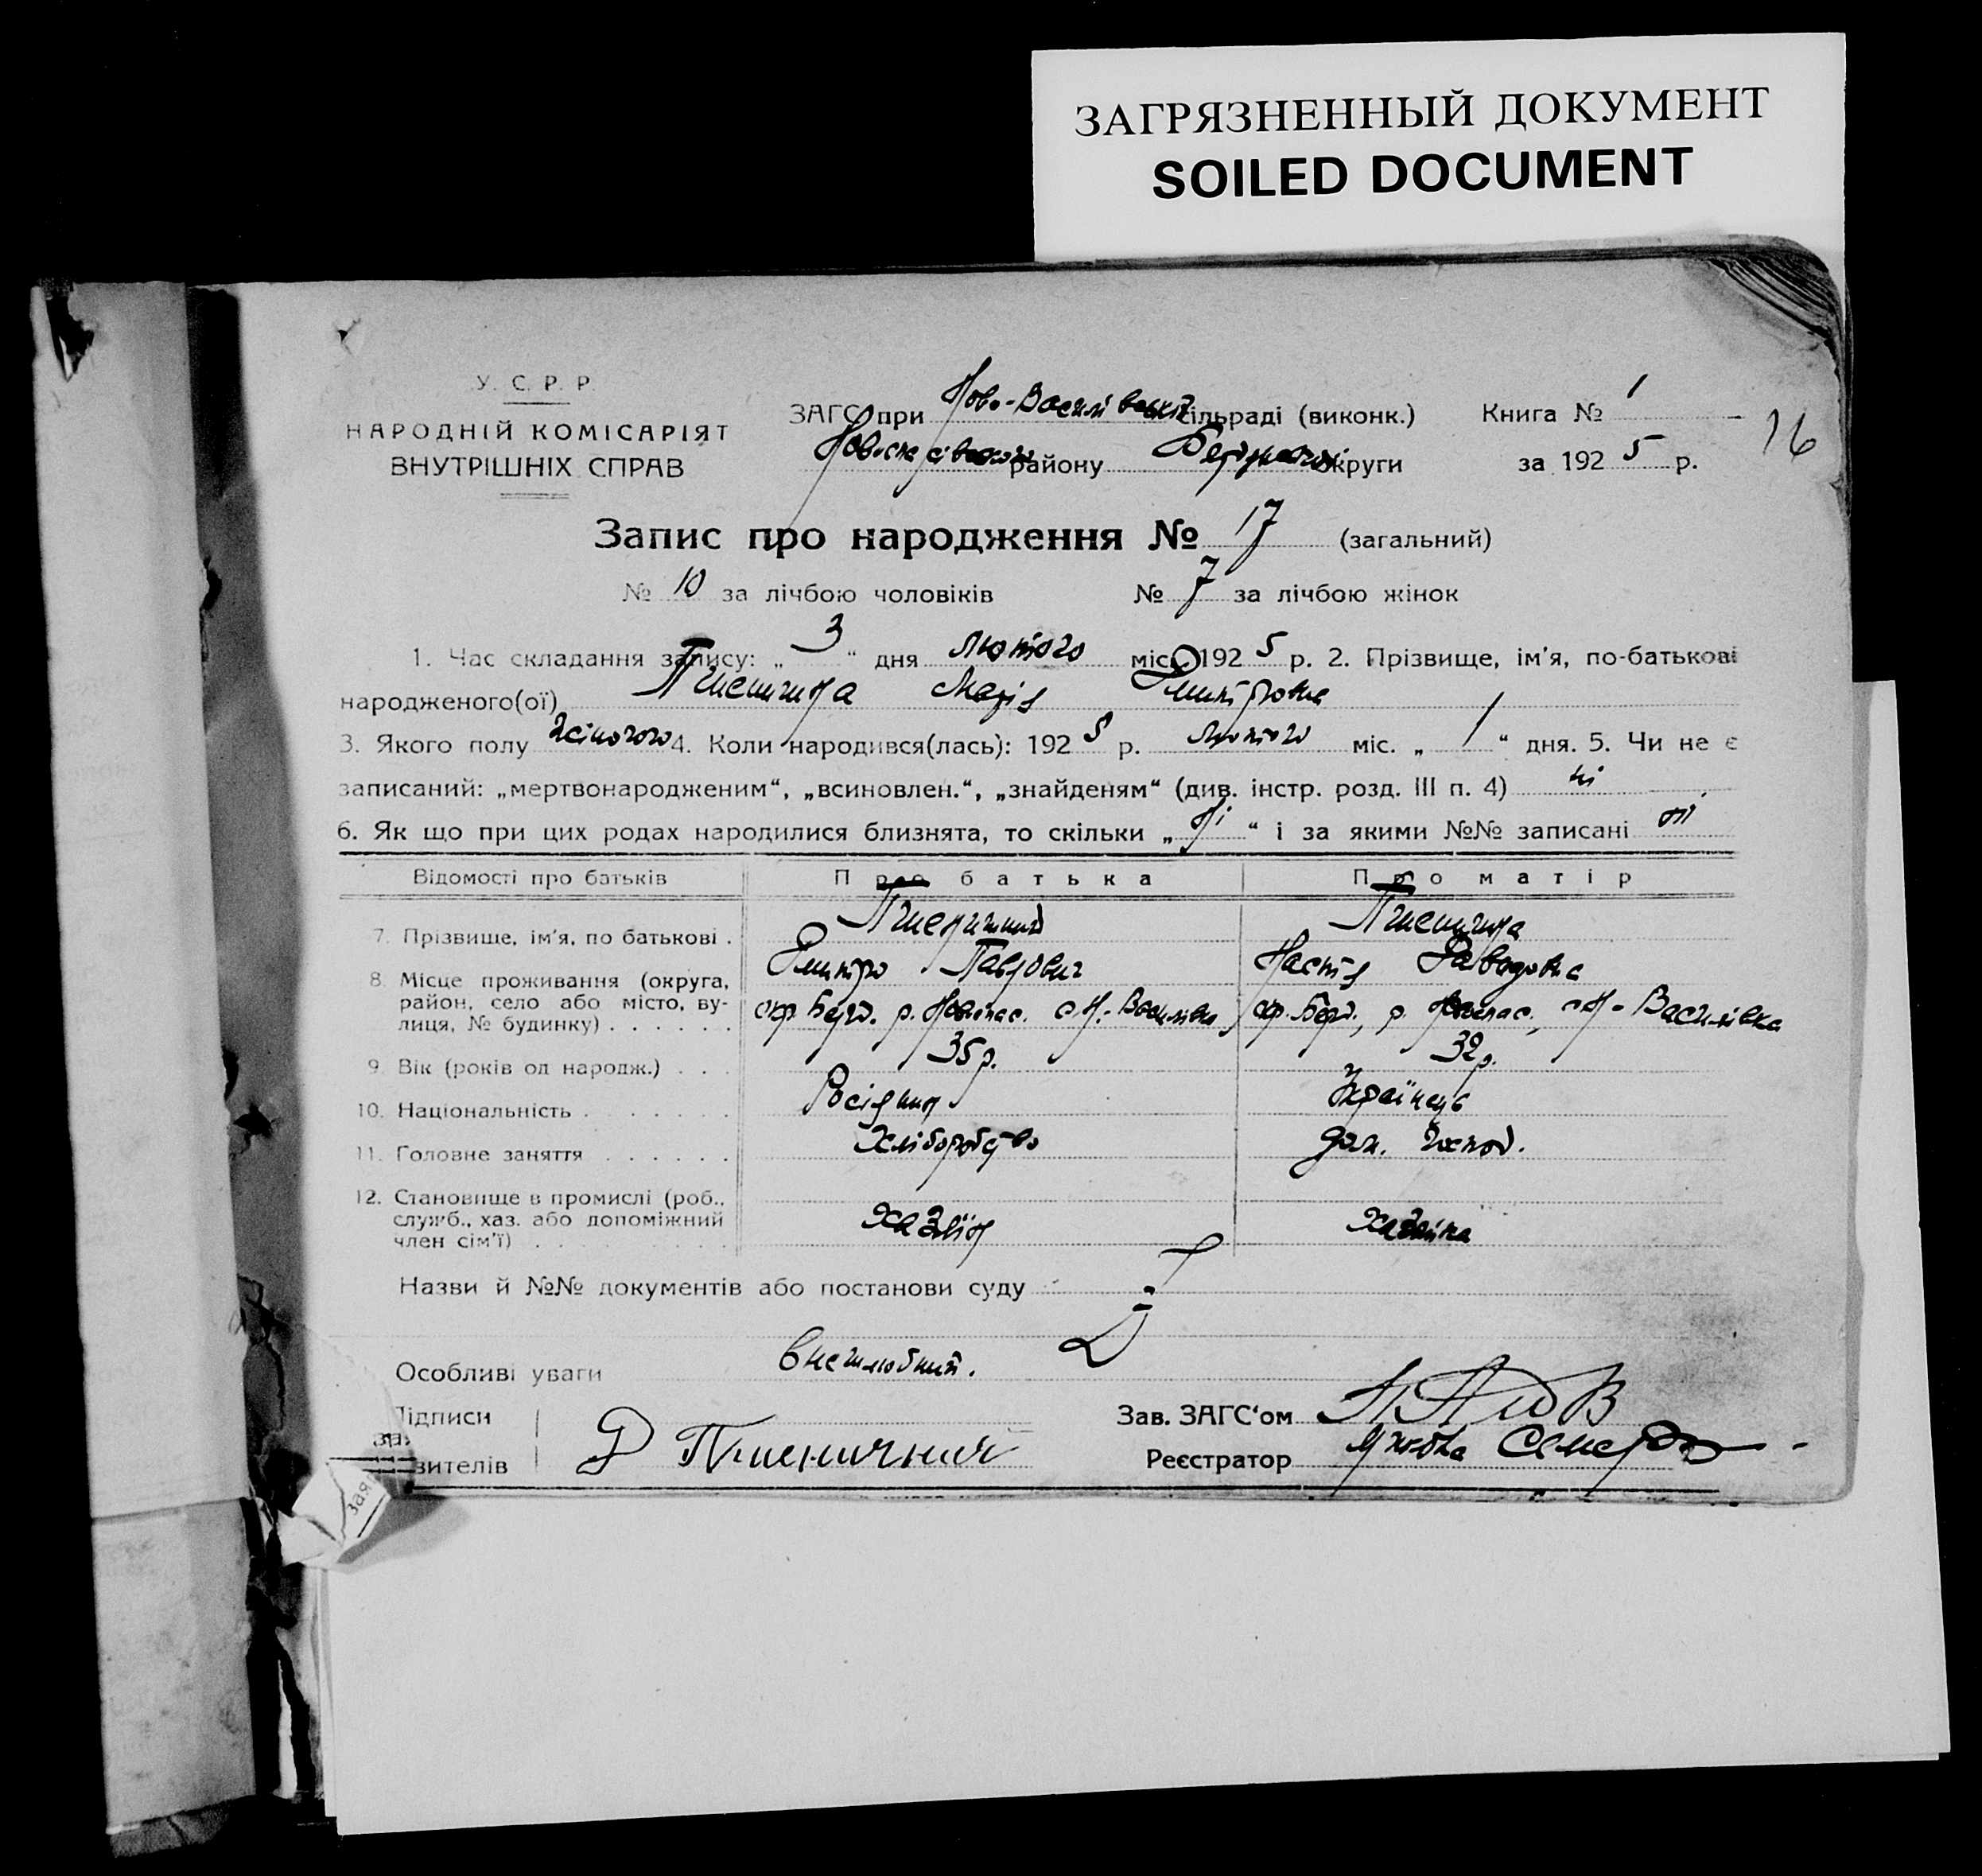 ЗАГРЯЗНЕННЫЙ ДОКУМЕНТ
SOILED DOCUMENT
У. С. Р. Р.
НАРОДНІЙ КОМІСАРІЯТ
ВНУТРІШНІХ СПРАВ
ЗАГС при Ново-Василівській сільраді (виконк.)
району Бердянської округи
Книга № 1
за 1925 р.
16
Запис про народження № 17 (загальний)
№ 10 за лічбою чоловіків № 7 за лічбою жінок
1. Час складання запису: „3“ дня лютого міс. 1925 р. 2. Прізвище, ім'я, по-батькові
народженого(ої) Пшенишна Марія Дмитровна
3. Якого полу жіночого 4. Коли народився(лась): 1925 р. лютого міс. „1“ дня. 5. Чи не є
записаний: „мертвонародженим“, „всиновлен.“, „знайденям“ (див. інстр. розд. III п. 4) ні
6. Як що при цих родах народилися близнята, то скільки „ні“ і за якими №№ записані ні
Відомості про батьків Про батька Про матір
7. Прізвище, ім'я, по батькові . Пшенишний Дмитро Павлович Пшенишна Настя
8. Місце проживання (округа,
район, село або місто, ву-
лиця, № будинку) . . . . . . окр. Берд. р. Новоспас. с. Н.-Василівка окр. Берд., р. Новоспас., с. Н-Василівка
9. Вік (років од народж.) . . . 35 р. 32 р.
10. Національність . . . . . . . Росіянин Українець
11. Головне заняття . . . . . . Хліборобство дом. господ.
12. Становище в промислі (роб.,
служб., хаз. або допоміжний
член сім'ї) . . . . . . . . . Хазяїн Хазяйка
Назви й №№ документів або постанови суду
Особливі уваги внешлюбний.
Підписи
зителів
Д Пшеничний
Зав. ЗАГС'ом
Реєстратор
зая